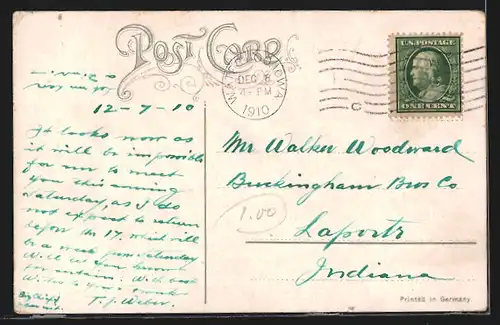 POST CARD
DEC 8
4 - PM
1910
U.S. POSTAGE
ONE CENT
12-7-10
It looks now as
it will be impossible
for me to meet
you this coming
Saturday, as I do
not expect to return
before the 17, which will
be a week from Saturday.
for certain. Will
T. J. Weber.
Mr Walker Woodward
Buckingham Bros Co.
1.00
Laporte
Indiana
Printed in Germany.